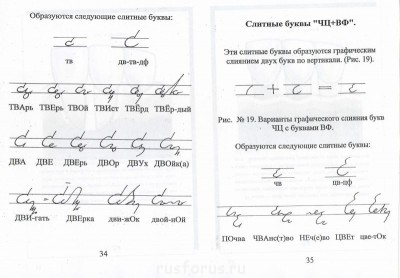 Образуются следующие слитные буквы:
тв дв-тв-дф
ТВАрь ТВЁрь ТВОй ТВИст ТВЁрд ТВЁр-дый
ДВА ДВЕ ДВЕрь ДВОр ДВУх ДВОйк(а)
ДВИ-гать ДВЕрка дви-жОк двой-нОй
34
Слитные буквы "ЧЦ+ВФ".
Эти слитные буквы образуются графическим
слиянием двух букв по вертикали. (Рис. 19).
+ =
Рис. № 19. Варианты графического слияния букв
ЧЦ с буквами ВФ.
Образуются следующие слитные буквы:
чв цв-цф
ПОчва ЧВАнс(т)во НЕч(е)во ЦВЕт цве-тОк
35
rusforus.ru